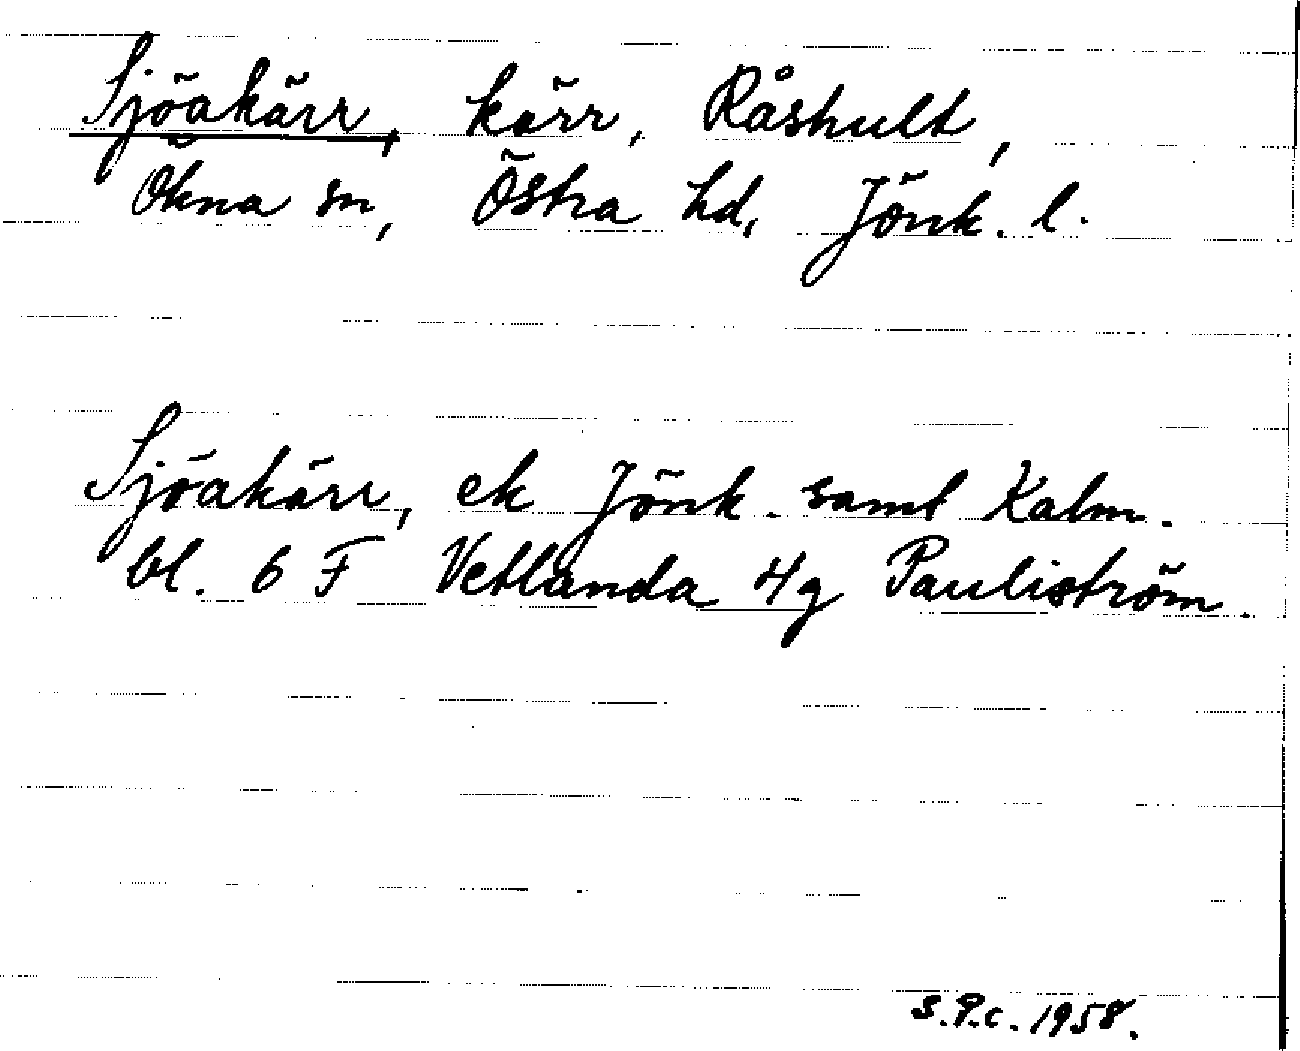 Sjöakärr, kärr, Råshult,
Ökna sn, Östra hd, Jönk. l.
Sjöakärr, ek Jönk. samt Kalm.
bl. 6 F Vetlanda 4g Pauliström.
S.P.C. 1958.